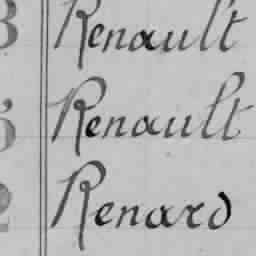 3 Renault
5 Renault
2 Renard